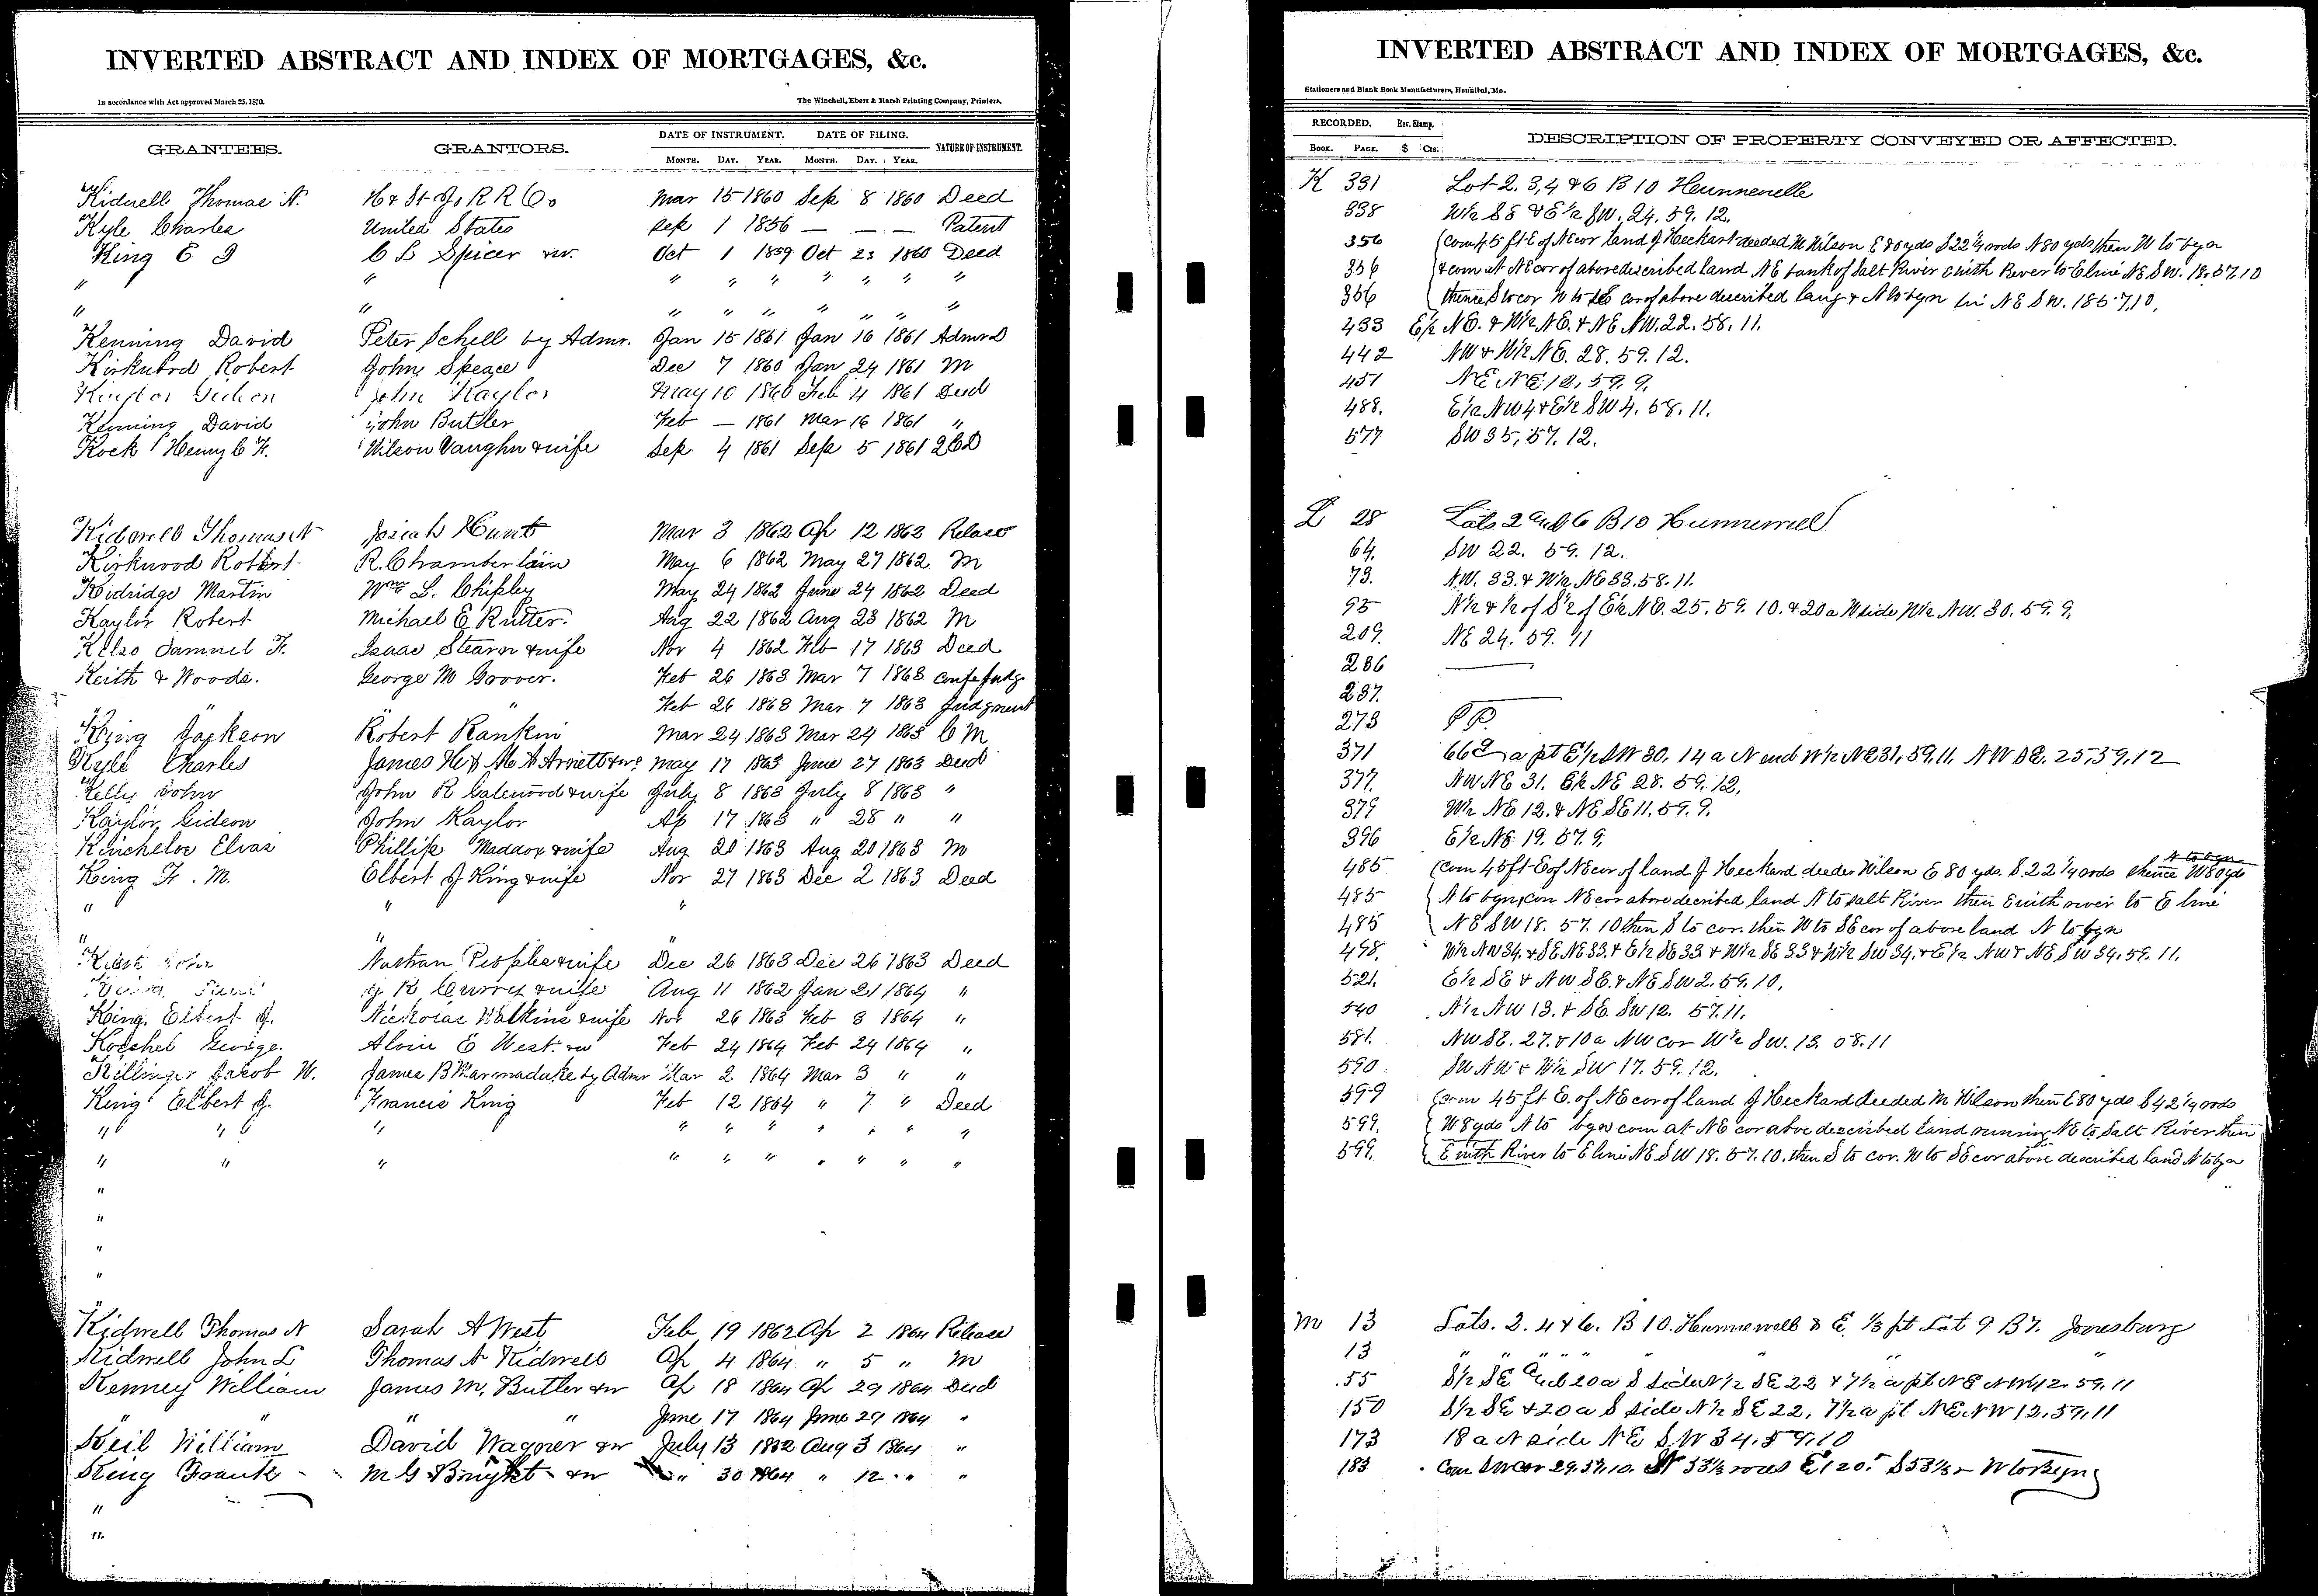 INVERTED ABSTRACT AND INDEX OF MORTGAGES, &c.
In accordance with Act approved March 25, 1870.
The Winchell, Ebert & Marsh Printing Company, Printers,
DATE OF INSTRUMENT. DATE OF FILING.
GRANTEES. GRANTORS. NATURE OF INSTRUMENT.
MONTH. DAY. YEAR. MONTH. DAY. YEAR.
Kidwell Thomas N. H & St Jo R R Co Mar 15 1860 Sep 8 1860 Deed
Kyle Charles United States Sep 1 1856 — — — Patent
King E J C L Spicer & w. Oct 1 1859 Oct 23 1860 Deed
" " " " " " " " "
" " " " " " " "
Kenning David Peter Schell by Admr. Jan 15 1861 Jan 16 1861 Admr D
Robert John Speace Dec 7 1860 Jan 24 1861 M
John Kaylor May 10 1860 Feb 4 1861 Deed
Kenning David John Butler Feb — 1861 Mar 16 1861 "
Kock Henry C F. Wilson Vaughn & wife Sep 4 1861 Sep 5 1861
Kidwell Thomas N Josiah Hunt Mar 3 1862 Ap 12 1862 Release
Kirkwood Robert R. Chamberlain May 6 1862 May 27 1862 M
Kidridge Martin Wm L. Chipley May 24 1862 June 24 1862 Deed
Kaylor Robert Michael E Rutter. Aug 22 1862 Aug 23 1862 M
Kelso Samuel F. Isaac Stearn & wife Nov 4 1862 Feb 17 1863 Deed
Keith & Woods. George M Goover. Feb 26 1863 Mar 7 1863 Confs Judg
" " Feb 26 1863 Mar 7 1863 Judgment
King Jackson Robert Rankin Mar 24 1863 Mar 24 1863 C M
Kyle Charles James H & May 17 1863 June 27 1863 Deed
Kelly John John R Gatewood & wife July 8 1863 July 8 1863 "
Kaylor Gideon John Kaylor Ap 17 1863 " 28 " "
Kincheloe Elvas Phillip Maddox & wife Aug 20 1863 Aug 20 1863 M
King F. M. Elbert J King & wife Nov 27 1863 Dec 2 1863 Deed
" " "
" " "
John Nathan Peoples & wife Dec 26 1863 Dec 26 1863 Deed
J R Currey & wife Aug 11 1862 Jan 21 1864 "
King Elbert J. Nickolas Walkins & wife Nov 26 1863 Feb 8 1864 "
Koeshel George. Alvin E West & w Feb 24 1864 Feb 24 1864 "
Killinger Jacob W. James B Marmaduke by Admr Mar 2 1864 Mar 3 " "
King Elbert J. Francis King Feb 12 1864 " 7 " Deed
" " " " " " " " " "
" " " " " " " " " "
"
"
"
"
"
Kidwell Thomas N Sarah A West Feb 19 1862 Ap 2 1864 Release
Kidwell John L Thomas N Kidwell Ap 4 1864 " 5 " M
Kenney William James M. Butler & w Ap 18 1864 Ap 29 1864 Deed
" " " June 17 1864 June 29 1864 "
Keil William David Wagner & w July 13 1832 Aug 3 1864 "
King Frank M G Bright & w " 30 1864 " 12 " "
"
"
INVERTED ABSTRACT AND INDEX OF MORTGAGES, &c.
Stationers and Blank Book Manufacturers, Hannibal, Mo.
RECORDED. Rev. Stamp.
DESCRIPTION OF PROPERTY CONVEYED OR AFFECTED.
BOOK. PAGE. $ Cts.
K 331 Lot 2. 3, 4 & 6 B 10 Hunnewell
338 W½ SE & E½ SW. 24. 59. 12.
356 (Com 45 ft E of NE cor land J Heckart deeded M Wilson E 80 yds S 22¼ rods N 80 yds then W to bgn
356 & com at NE cor of above discribed land N E bank of Salt River E with River to E line NE SW. 18. 57. 10
356 thence S to cor W to SE cor of above described land & N to bgn in NE SW. 18 57, 10.
433 E½ NE. & W½ NE. & NE NW. 22. 58. 11.
442 NW & W½ NE. 28. 59. 12.
451 NE NE 12, 59. 9.
488. E½ NW 4 & E½ SW 4. 58. 11.
577 SW 35, 57. 12.
L 28 Lots 2 and 6 B 10 Hunnewell
64. SW 22. 59. 12.
73. N.W. 33. & W½ NE 33. 58. 11.
95 N½ & ½ of S½ of E½ NE. 25. 59. 10. & 20 a W side W½ NW. 30. 59. 9.
209. NE 24. 59. 11
236 —
237. —
273 P P.
371 66 a pt E½ SW 30. 14 a N end W½ NE 31, 59, 11. NW SE. 25, 59, 12
377. NW NE 31. E½ NE 28. 59. 12.
379 W½ NE 12. & NE SE 11. 59. 9.
396 E½ NE 19. 57. 9.
485 (Com 45 ft E of NE cor of land J Heckard deeded Wilson E 80 yds. S. 22¼ rods thence W 80 yds
485 N to bgn, com NE cor above decribed land N to Salt River then E with river to E line
485 NE SW 18. 57. 10 then S to cor. then W to SE cor of above land N to bgn
498. W½ NW 34. & SE NE 33. & E½ SE 33 & W½ SE 33 & W½ SW 34. & E½ NW & NE SW 34. 59. 11.
521. E½ SE & NW SE. & NE SW 2. 59. 10.
540 N½ NW 13. & SE. SW 12. 57. 11.
581. NW SE. 27. & 10 a NW cor W½ SW. 13. 58. 11
590 SW NW & W½ SW 17. 59. 12.
599 Com 45 ft E. of NE cor of land J Heckard deeded M Wilson then E 80 yds S 42¼ rods
599. W 8 yds N to bgn com at NE cor above described land running NE to Salt River then
599. E with River to E line NE SW 18. 57. 10. then S to cor. W to SE cor above described land N to bgn
M 13 Lots. 2. 4 & 6. B 10. Hunnewell & E ⅓ pt Lot 9 B 7. Jonesburg
13 " " " " " "
55 S½ SE and 20 a S side N½ SE 22 & 7½ a pt NE NW 12. 59. 11
150 S½ SE & 20 a S side N½ SE 22, 7½ a pt NE NW 12, 59, 11
173 18 a N side NE SW 34. 59. 10
183 Com SW cor 29. 57. 10. N 53⅓ rods E 120 S 53⅓ W to Begn